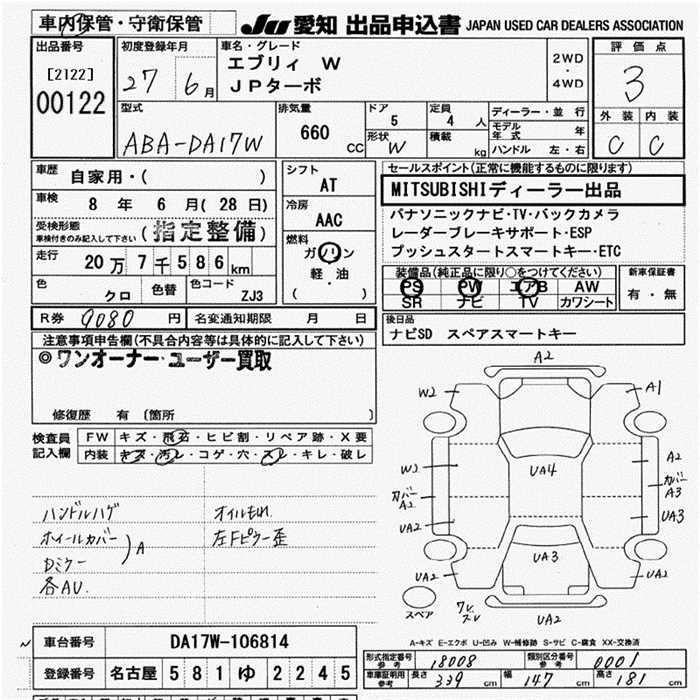 車内保管・守衛保管
JU 愛知 出品申込書 JAPAN USED CAR DEALERS ASSOCIATION
出品番号
[2122]
00122
初度登録年月
27 6月
車名・グレード
エブリィ W
JPターボ
2WD
・
4WD
評価点
3
外装 内装
C C
型式
ABA-DA17W
排気量
660 cc
ドア
5
定員
4 人
形状
W
積載
kg
ディーラー・並行
モデル年式 年
ハンドル 左・右
車歴
自家用・( )
車検
8 年 6 月 (28 日)
受検形態
車検付きのみ記入して下さい
(指定整備)
走行
20万7千586km
色
クロ
色替
色コード
ZJ3
シフト
AT
冷房
AAC
燃料
ガソリン
軽・油
( )
セールスポイント(正常に機能するものに限ります)
MITSUBISHIディーラー出品
パナソニックナビ・TV・バックカメラ
レーダーブレーキサポート・ESP
プッシュスタートスマートキー・ETC
装備品(純正品に限り○をつけてください)
PS PW エアB AW
SR ナビ TV カワシート
新車保証書
有・無
R券 9080 円
名変通知期限 月 日
後日品
ナビSD スペアスマートキー
注意事項申告欄(不具合内容等は具体的に記入して下さい)
◎ワンオーナー・ユーザー買取
修復歴 有〔箇所 〕
検査員
記入欄
FW キズ・飛石・ヒビ割・リペア跡・X要
内装 キズ・汚レ・コゲ・穴・スレ・キレ・破レ
ハンドルハゲ
オイルもれ
ホイールカバー
左Fピラー歪
Dミラー
A
各AU
A2
W2
A1
W3
UA4
A2
カバー
A3
カバー
A2
UA2
UA3
UA3
UA2
UA2
スペア
UA2
A-キズ E-エクボ U-凹み W-補修跡 S-サビ C-腐食 XX-交換済
車台番号
DA17W-106814
登録番号
名古屋 581 ゆ 2245
形式指定番号
参考
18008
類別区分番号
参考
0001
車庫証明用
参考
長さ 339 cm
幅 147 cm
高さ 181 cm